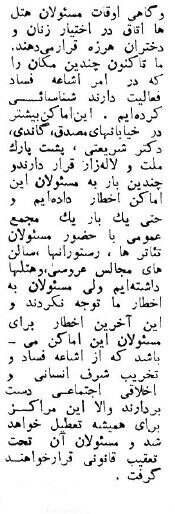 وگاهی اوقات مسئولان هتل
ها اتاق در اختیار زنان و
دختران هرزه قرار می‌دهند.
ما تاکنون چندین مکان را
که در امر اشاعه فساد
فعالیت دارند شناسائی
کرده‌ایم . این‌اماکن‌بیشتر
در خیابانهای‌مصدق،گاندی،
دکتر شریعتی ، پشت پارک
ملت و لاله‌زار قرار دارندو
چندین بار به مسئولان این
اماکن اخطار داده‌ایم و
حتی یک بار یک مجمع
عمومی با حضور مسئولان
تئاتر ها ، رستورانها،سالن
های مجالس عروسی،وهتلها
داشته‌ایم ولی مسئولان به
اخطار ما توجه نکردند و
این آخرین اخطار برای
مسئولان این اماکن می ـ
باشد که از اشاعه فساد و
تخریب شرف انسانی و
اخلاقی اجتماعی دست
بردارند والا این مراکز
برای همیشه تعطیل خواهد
شد و مسئولان آن تحت
تعقیب قانونی قرارخواهند
گرفت .